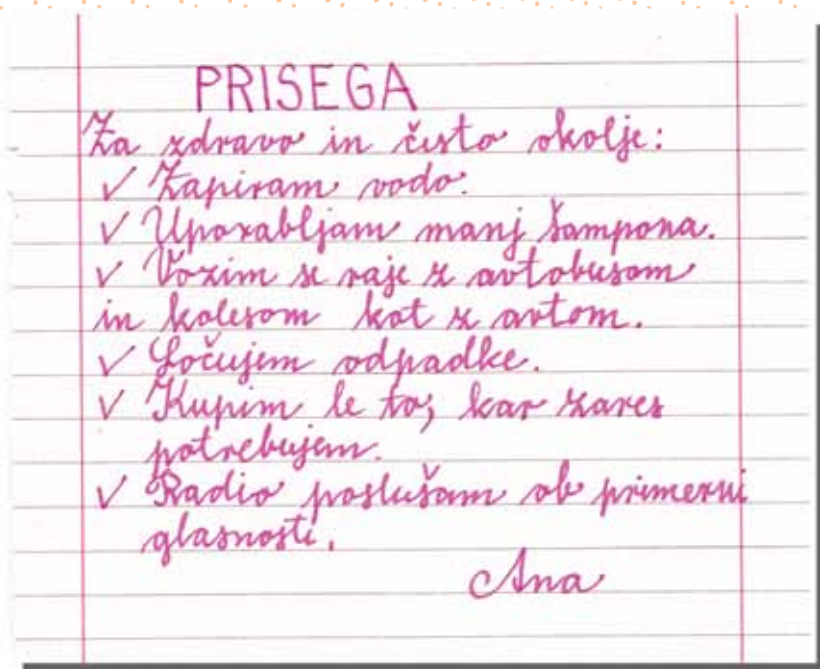 PRISEGA
Za zdravo in čisto okolje:
✓ Zapiram vodo.
✓ Uporabljam manj šampona.
✓ Vozim se raje z avtobusom
in kolesom kot z avtom.
✓ Ločujem odpadke.
✓ Kupim le to, kar zares
potrebujem.
✓ Radio poslušam ob primerni
glasnosti.
Ana